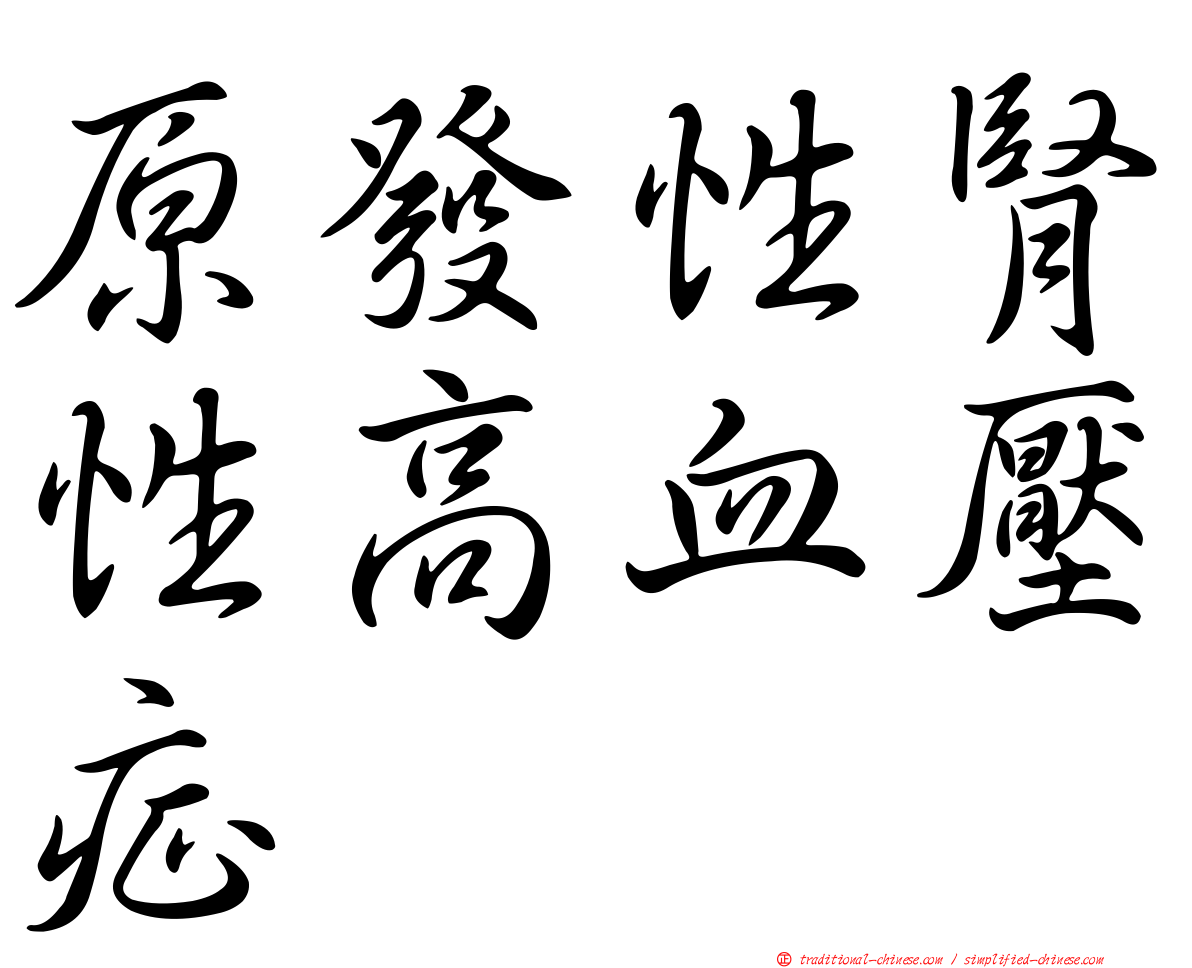 原發性腎
性高血壓
症
㊣ traditional-chinese.com / simplified-chinese.com